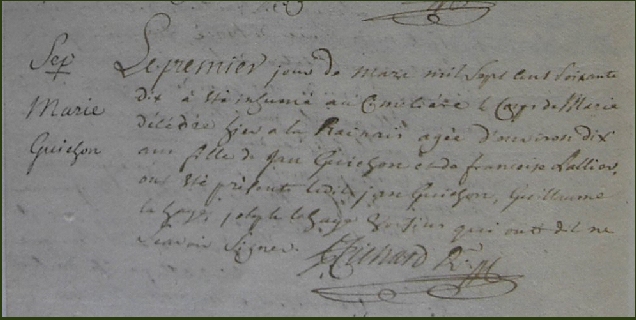 Sep
Marie
Guichon
Le premier jour de mars mil Sept cent Soixante
dix a été inhumé au Cimetière le Corps de Marie
décédée hier a la agée d'environ dix
ans fille de jan Guichon et de francoise Lallier
ont été présents ledit jan Guichon, Guillaume
le haye, le haye qui ont dit ne
Scavoir Signer.